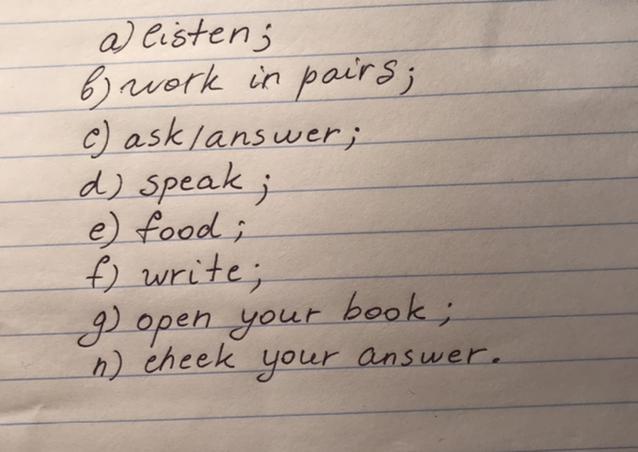 a) listen;
b) work in pairs;
c) ask/answer;
d) speak;
e) food;
f) write;
g) open your book;
h) cheek your answer.